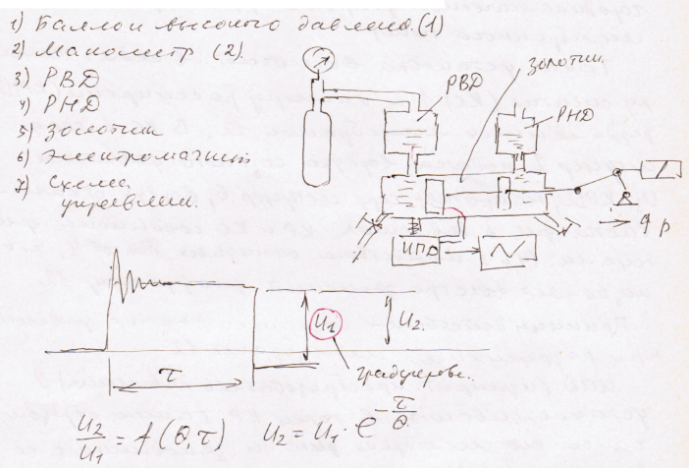 1) Баллон высокого давления (1)
2) Манометр (2)
3) РВД
4) РНД
5) Золотник
6) Электромагнит
7) Схема
управления.
РВД
золотник
РНД
ИПД
др
U₁
U₂
τ
градуировка.
U₂/U₁ = f(θ,τ) U₂ = U₁ · e^(-τ/θ)